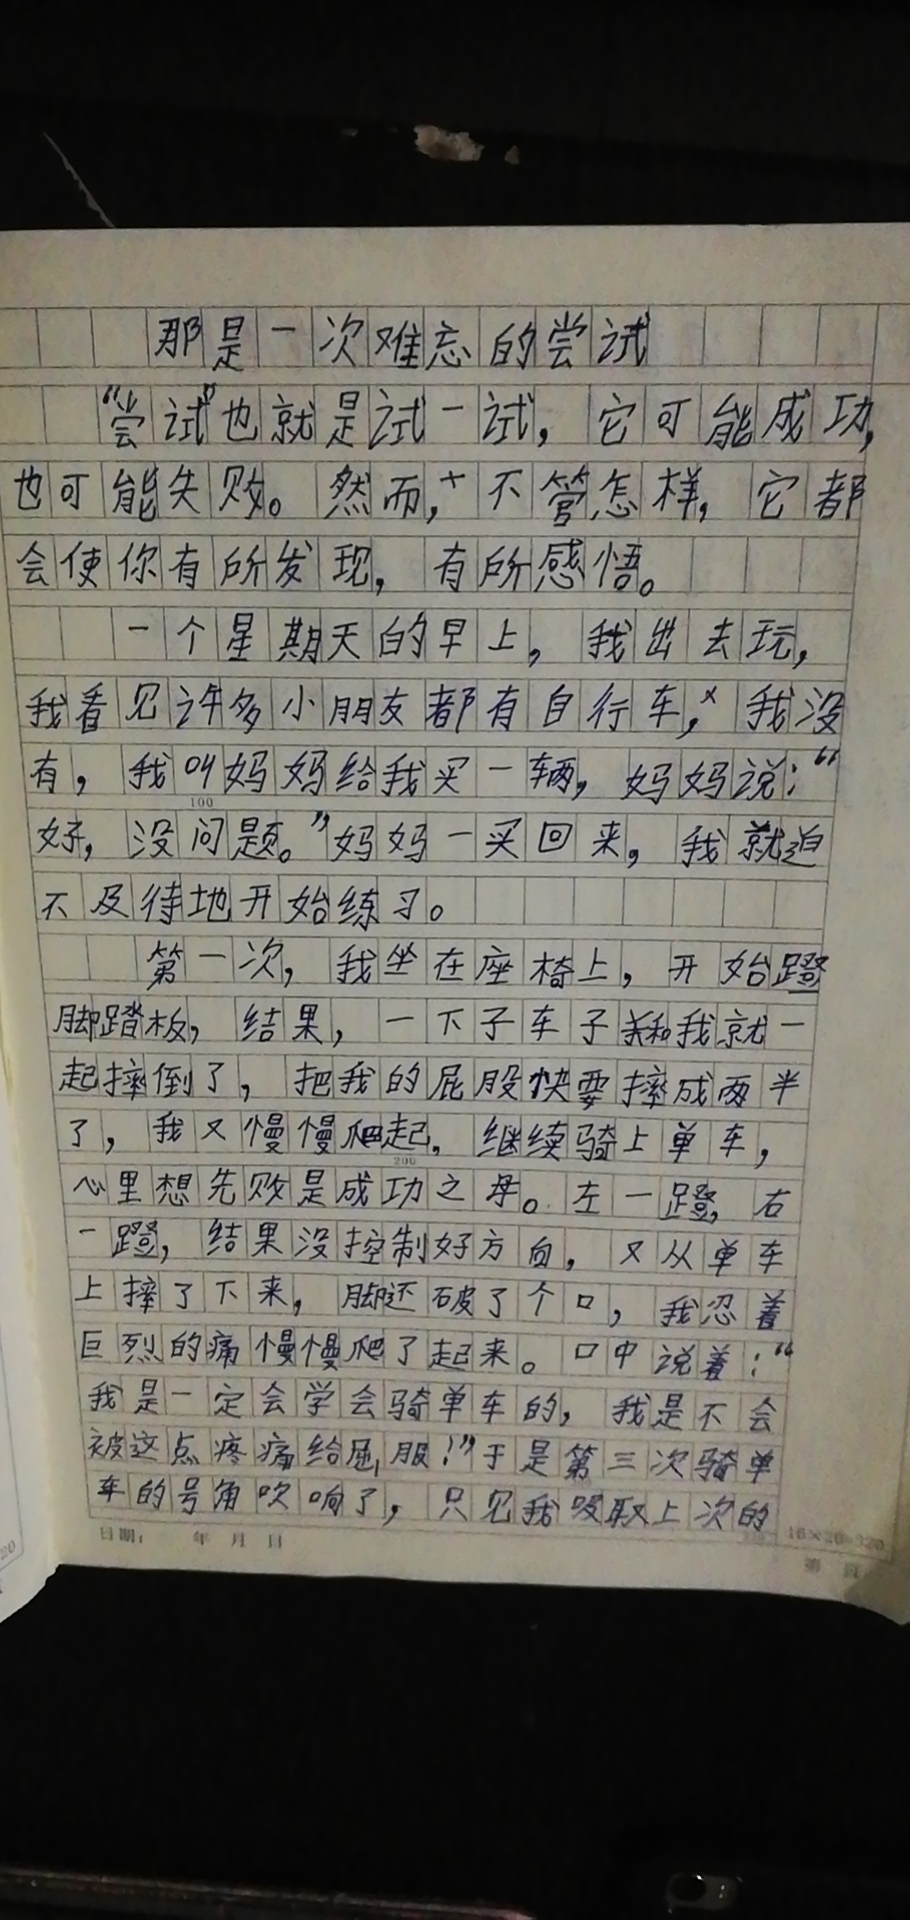 那是一次难忘的尝试
“尝试”也就是试一试，它可能成功，
也可能失败。然而，不管怎样，它都
会使你有所发现，有所感悟。
一个星期天的早上，我出去玩，
我看见许多小朋友都有自行车，我没
有，我叫妈妈给我买一辆，妈妈说：“
好，没问题。”妈妈一买回来，我就迫
不及待地开始练习。
第一次，我坐在座椅上，开始蹬
脚踏板，结果，一下子车子和我就一
起摔倒了，把我的屁股快要摔成两半
了，我又慢慢爬起，继续骑上单车，
心里想失败是成功之母。左一蹬，右
一蹬，结果没控制好方向，又从单车
上摔了下来，脚还破了个口，我忍着
巨烈的痛慢慢爬了起来。口中说着：“
我是一定会学会骑单车的，我是不会
被这点疼痛给屈服！”于是第三次骑单
车的号角吹响了，只见我吸取上次的
100
200
日期： 年 月 日
16×20=320
第 页
20